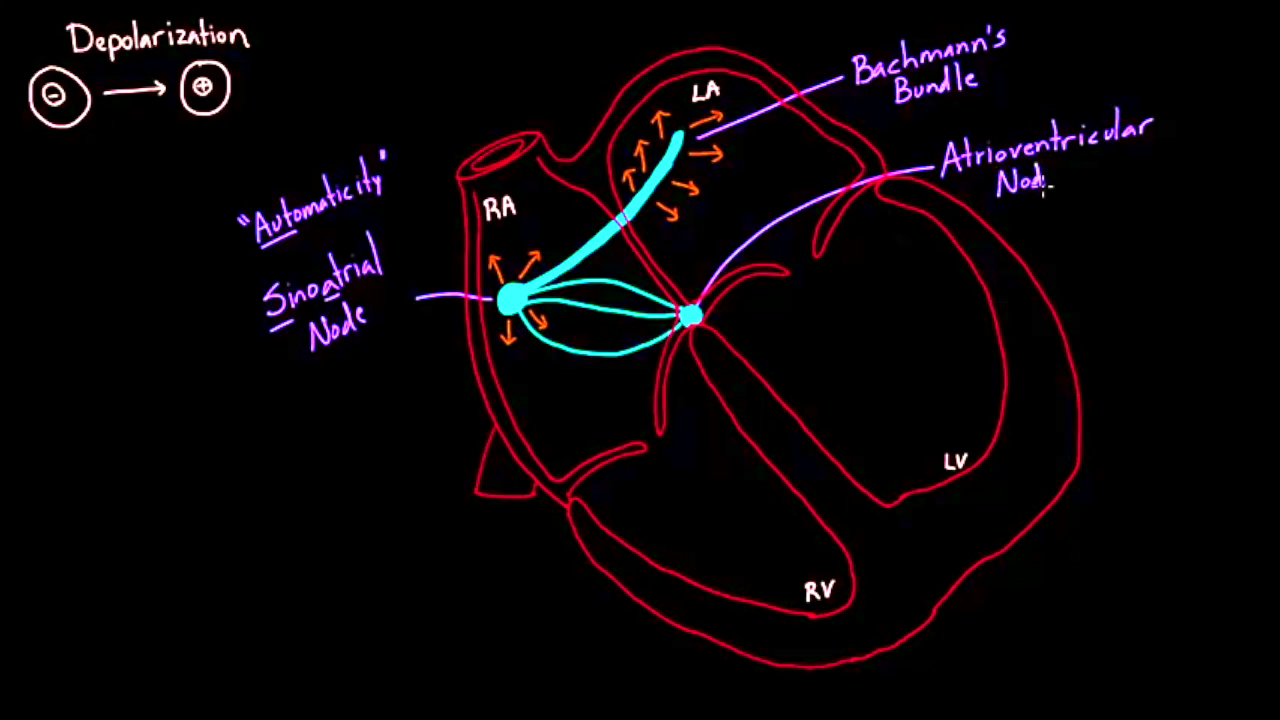 Depolarization
- → +
"Automaticity"
Sinoatrial
Node
RA
LA
Bachmann's
Bundle
Atrioventricular
Nod
LV
RV